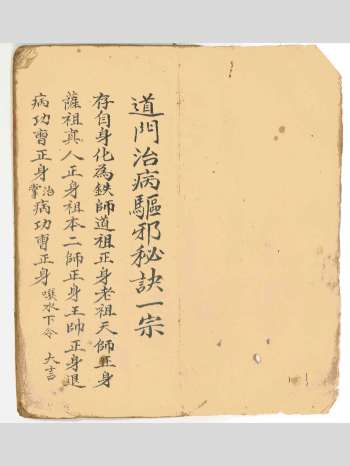 道門治病驅邪秘訣一宗
存自身化為鉄師道祖正身老祖天師正身
薩祖真人正身祖本二師正身王帥正身退
病功曹正身治掌病功曹正身噀水下令 大吉